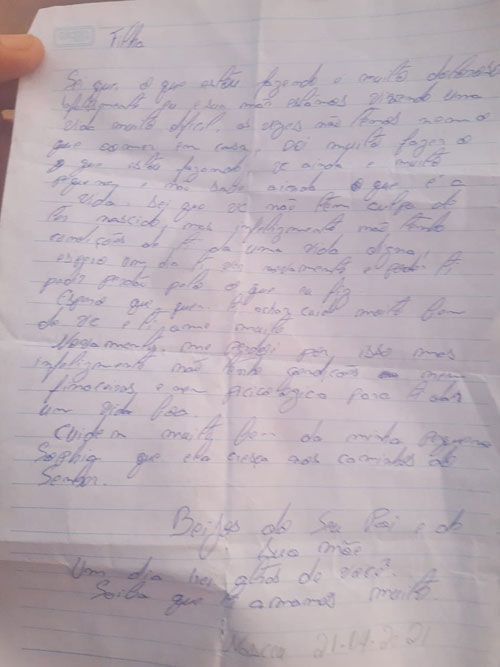 Filha
Sei que o que estou fazendo é muito doloroso
infelizmente eu e sua mãe estamos vivendo uma
vida muito dificil, as vezes não temos nem o
que comer em casa, Doi muito fazer o
que estou fazendo, vc ainda é muito
pequena e não sabe ainda o que é a
vida. Sei que vc não têm culpa de
ter nascido, mas infelizmente não tenho
condições de ti da uma vida digna,
espero um dia ti ver novamente e pedir ti
pedir perdão pelo o que eu fiz
Espero que quem ti achar cuide muito bem
de vc e ti ame muito.
Novamente, me perdoi por isso mas
infelizmente não tenho condições nem
financeiras e nem picicologica para ti dar
um vida boa.
Cuidem muito bem da minha pequena
Sophia que ela cresça nos caminhos do
Senhor.
Beijos do Seu Pai e da
Sua mãe
Um dia irei atrás de você.
Saiba que ti amamos muito.